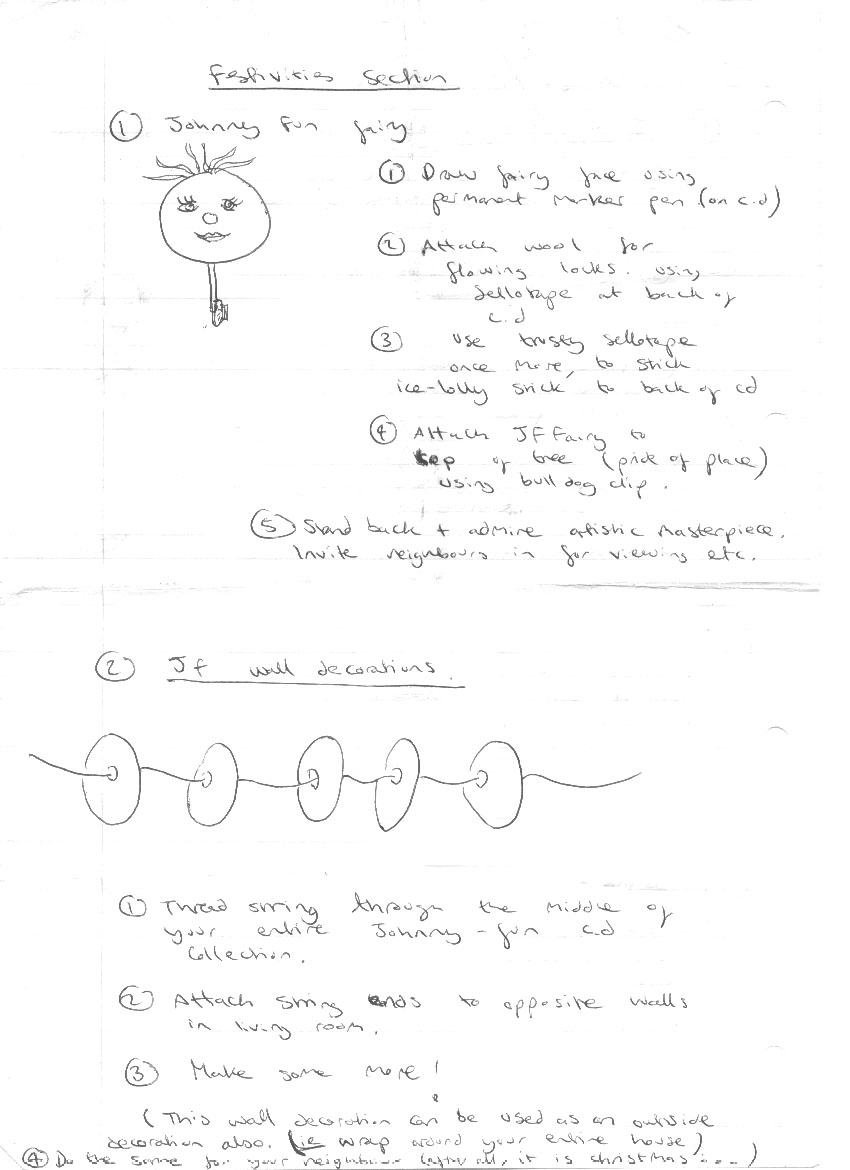 Festivities Section
① Johnny Fun fairy
① Draw fairy face using
permanent marker pen (on c.d)
② Attach wool for
flowing locks. using
sellotape at back of
c.d
③ use trusty sellotape
once more, to stick
ice-lolly stick to back of cd
④ Attach JF Fairy to
top of tree (pride of place)
using bull dog clip.
⑤ Stand back + admire artistic masterpiece.
Invite neighbours in for viewing etc.
② Jf wall decorations.
① Thread string through the middle of
your entire Johnny-fun c.d
Collection.
② Attach string ends to opposite walls
in living room.
③ Make some more!
(This wall decoration can be used as an outside
decoration also. (ie wrap around your entire house)
④ Do the same for your neighbour (after all, it is christmas....)